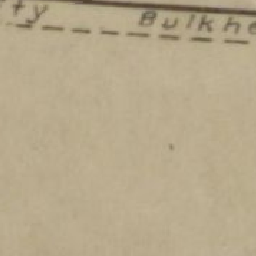 ty Bulkhe